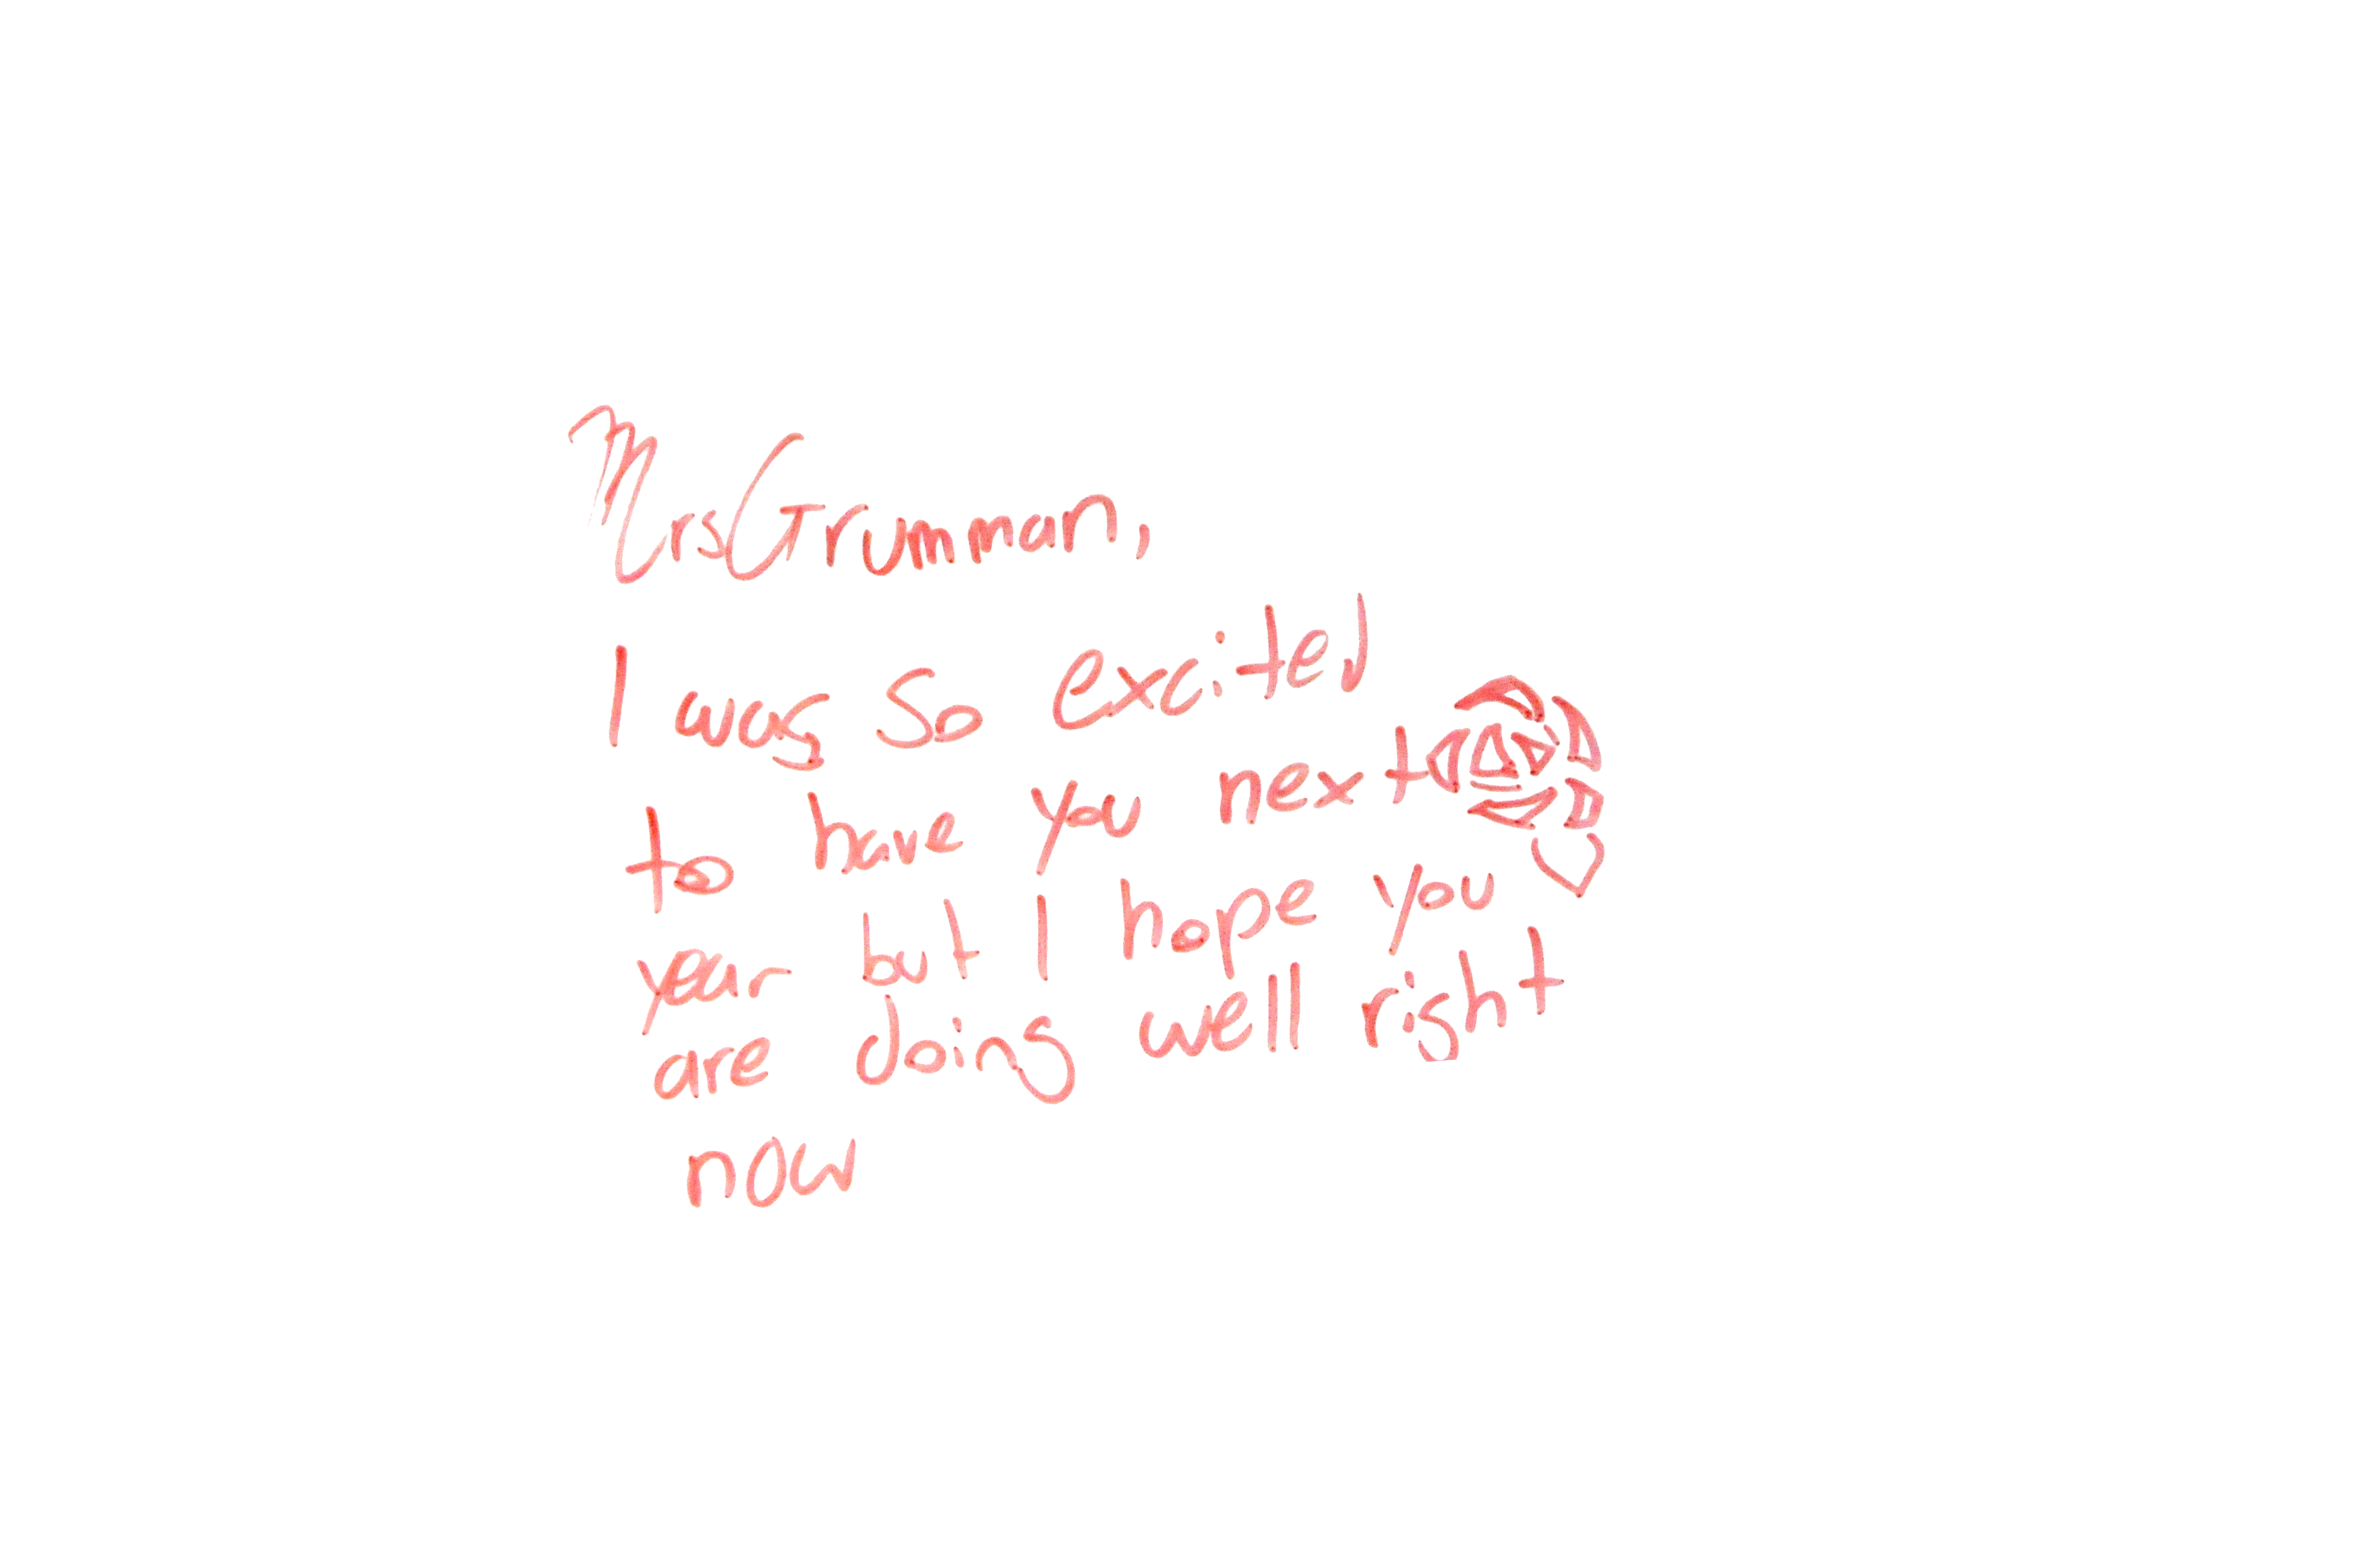 Mrs Grumman,
I was so excited
to have you next
year but I hope you
are doing well right
now